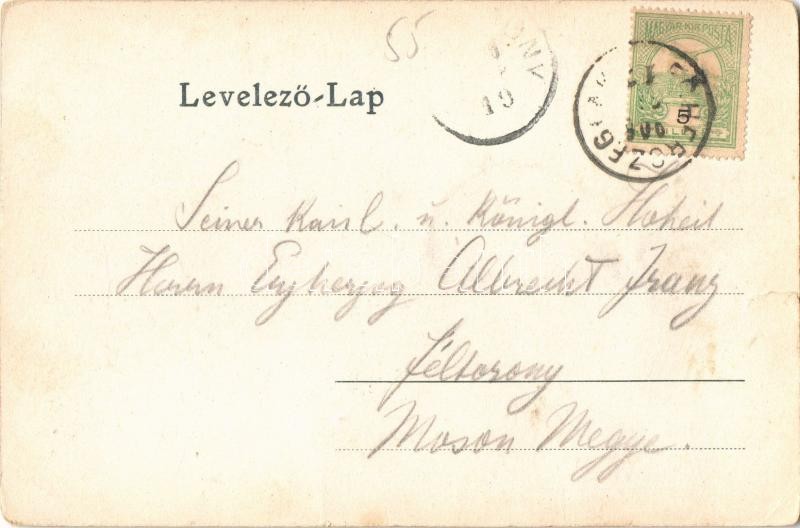 55
MAGYAR KIR. POSTA
5
Levelező-Lap
Seiner Kaisl. u. Königl. Hoheit
Herrn Erzherzog Albrecht Franz
Féltorony
Moson Megye.